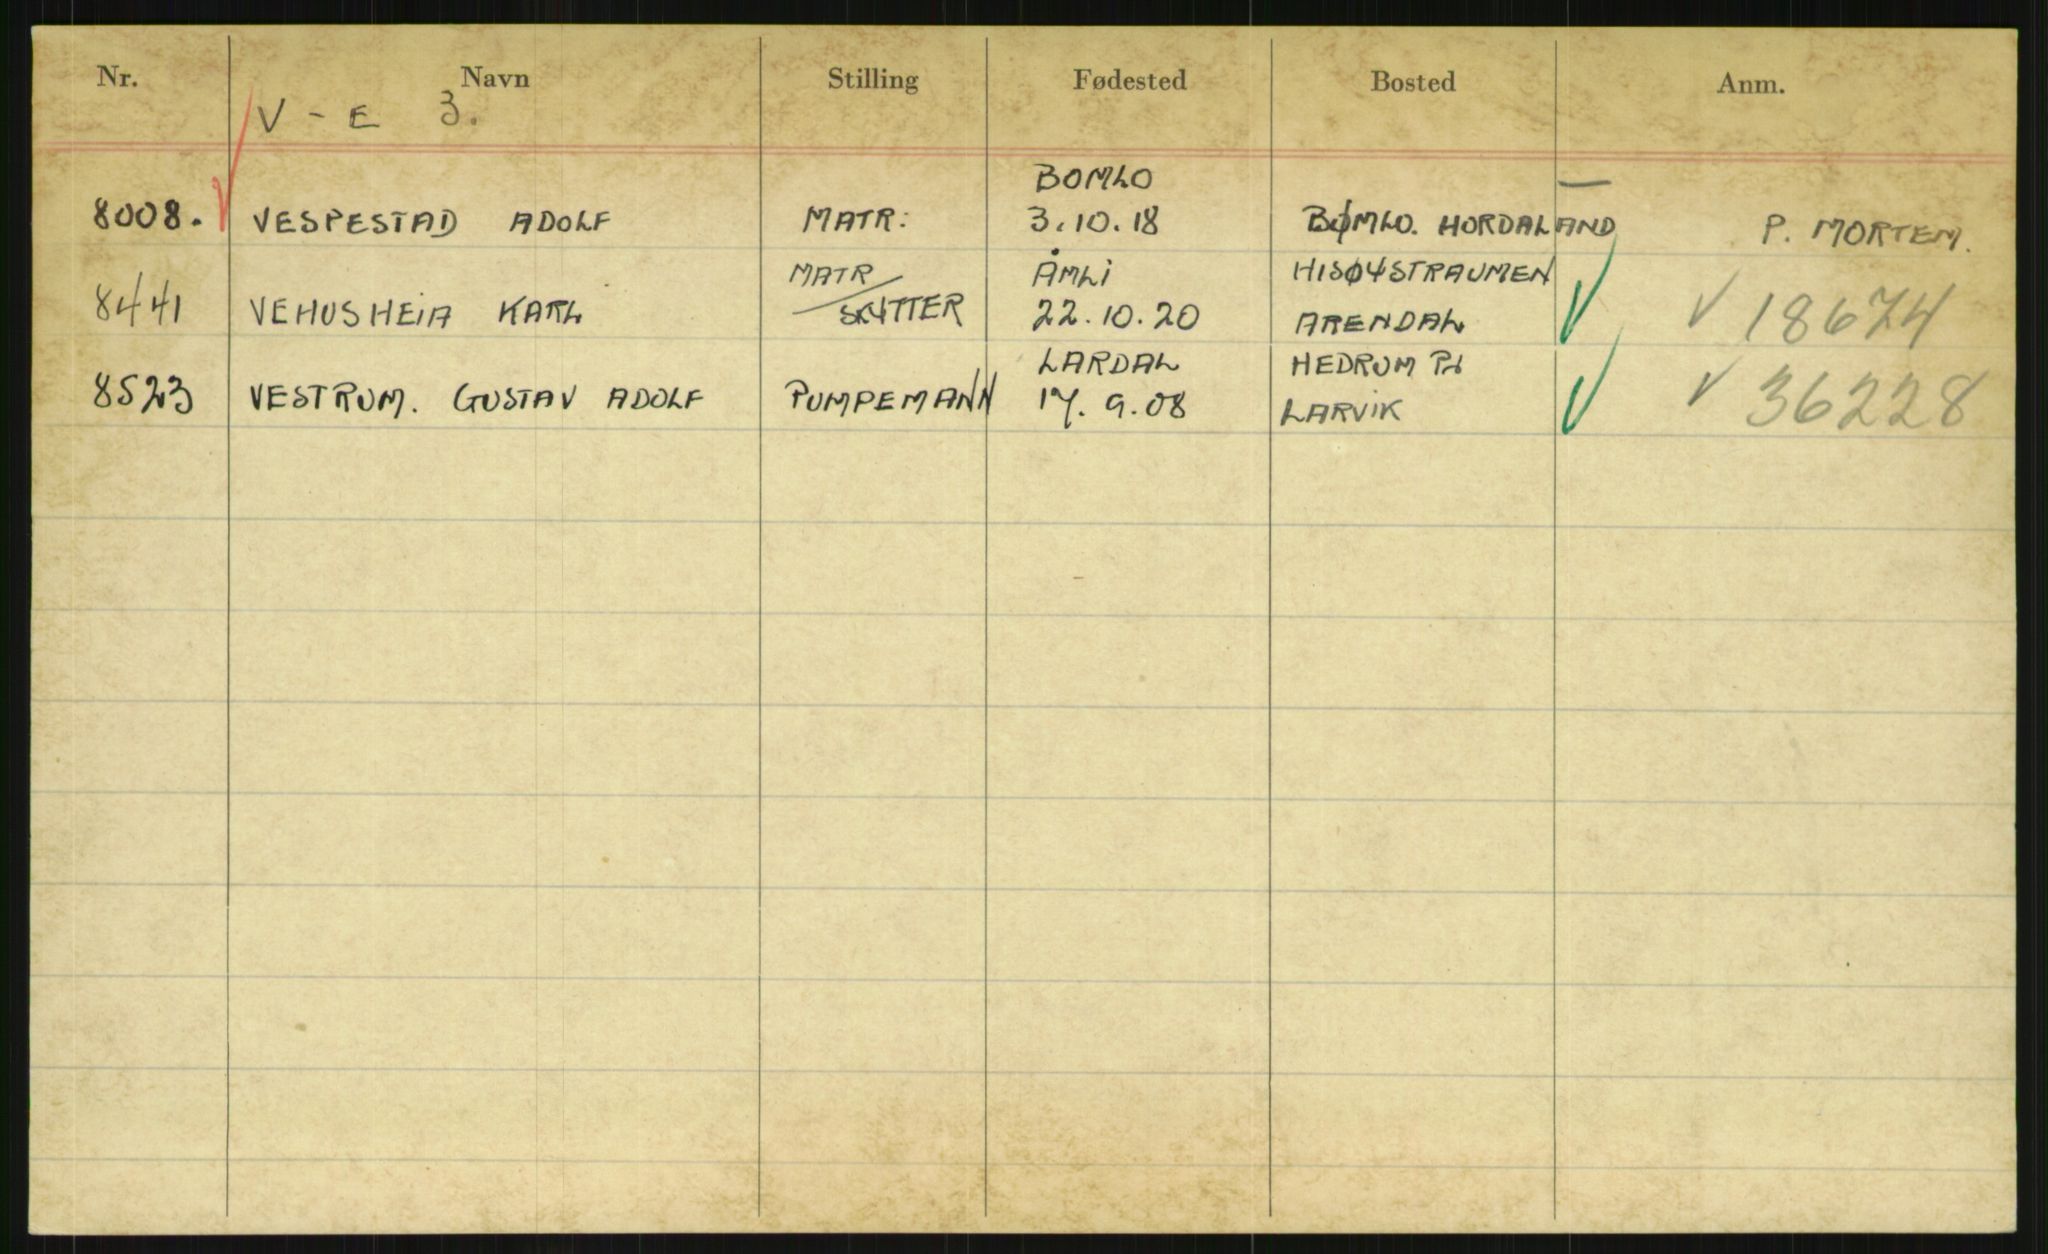 Nr. Navn Stilling Fødested Bosted Anm.
V - E 3.
BOMLO —
8008. VESPESTAD ADOLF MATR: 3.10.18 BØMLO. HORDALAND P. MORTEM.
MATR ÅMLI HISØYSTRAUMEN
8441 VEHUSHEIA KARL SKYTTER 22.10.20 ARENDAL ✓ ✓ 18674
LARDAL HEDRUM PL
8523 VESTRUM. GUSTAV ADOLF PUMPEMANN 17. 9. 08 LARVIK ✓ ✓ 36228